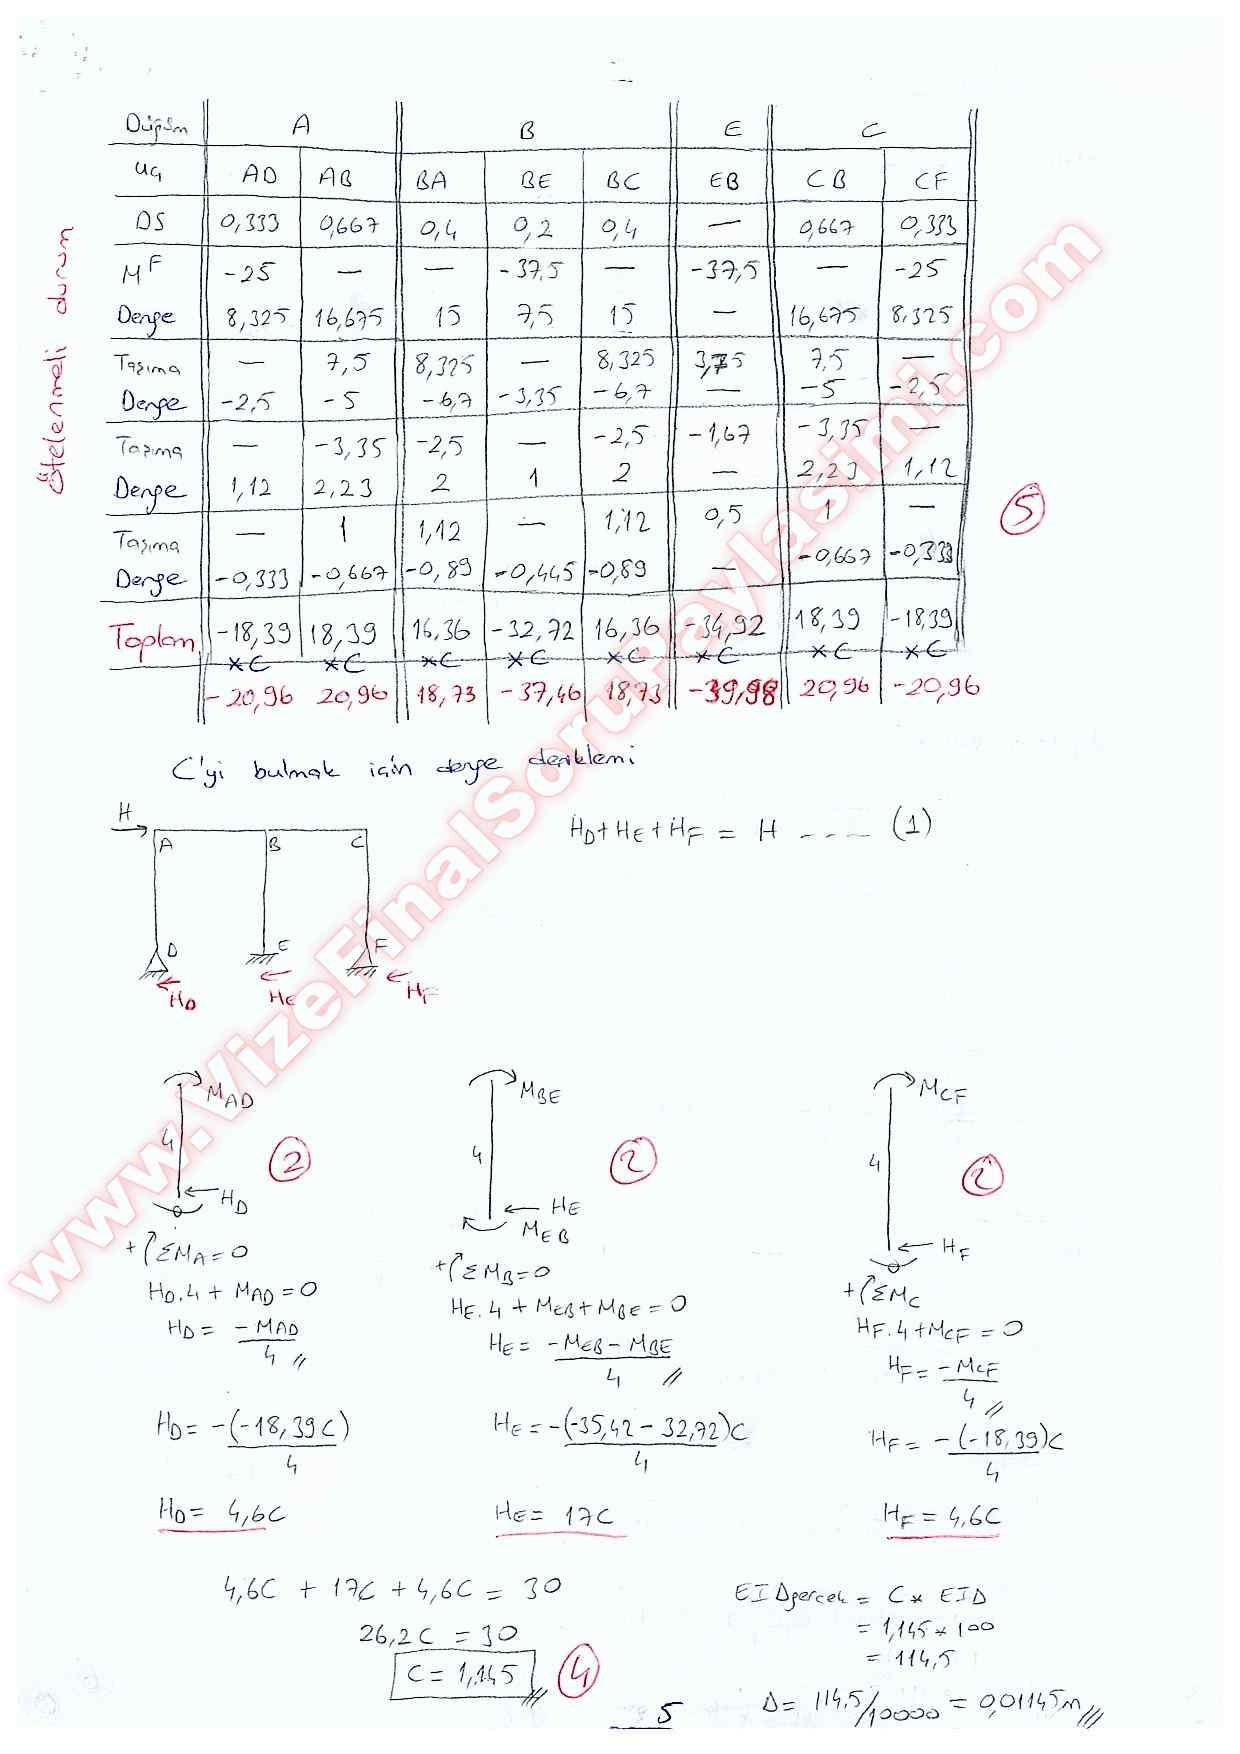 Düğüm A B E C
Uç AD AB BA BE BC EB CB CF
DS 0,333 0,667 0,4 0,2 0,4 — 0,667 0,333
M^F -25 — — -37,5 — -37,5 — -25
Denge 8,325 16,675 15 7,5 15 — 16,675 8,325
Taşıma — 7,5 8,325 — 8,325 3,75 7,5 —
Denge -2,5 -5 -6,7 -3,35 -6,7 — -5 -2,5
Taşıma — -3,35 -2,5 — -2,5 -1,67 -3,35 —
Denge 1,12 2,23 2 1 2 — 2,23 1,12
Taşıma — 1 1,12 — 1,12 0,5 1 —
Denge -0,333 -0,667 -0,89 -0,445 -0,89 — -0,667 -0,333
Toplam -18,39 18,39 16,36 -32,72 16,36 -34,92 18,39 -18,39
*C *C *C *C *C *C *C *C
-20,96 20,96 18,73 -37,46 18,73 -39,98 20,96 -20,96
Ötelenmeli durum
5
C'yi bulmak için denge denklemi
H
A B C
D E F
H_D H_E H_F
H_D+H_E+H_F = H ---- (1)
M_AD
4
H_D
2
+ΣM_A=0
H_D.4 + M_AD = 0
H_D = -M_AD/4 //
H_D = -(-18,39C)/4
H_D = 4,6C
M_BE
4
H_E
M_EB
2
+ΣM_B=0
H_E.4 + M_EB + M_BE = 0
H_E = (-M_EB - M_BE)/4 //
H_E = -(-35,42 - 32,72)C/4
H_E = 17C
M_CF
4
H_F
2
+ΣM_C
H_F.4+M_CF = 0
H_F = -M_CF/4 //
H_F = -(-18,39)C/4
H_F = 4,6C
4,6C + 17C + 4,6C = 30
26,2C = 30
C = 1,145 ///
4
EIΔgerçek = C * EIΔ
= 1,145 * 100
= 114,5
Δ = 114,5/10000 = 0,01145m ///
5
www.VizeFinalSoruPaylasimi.com